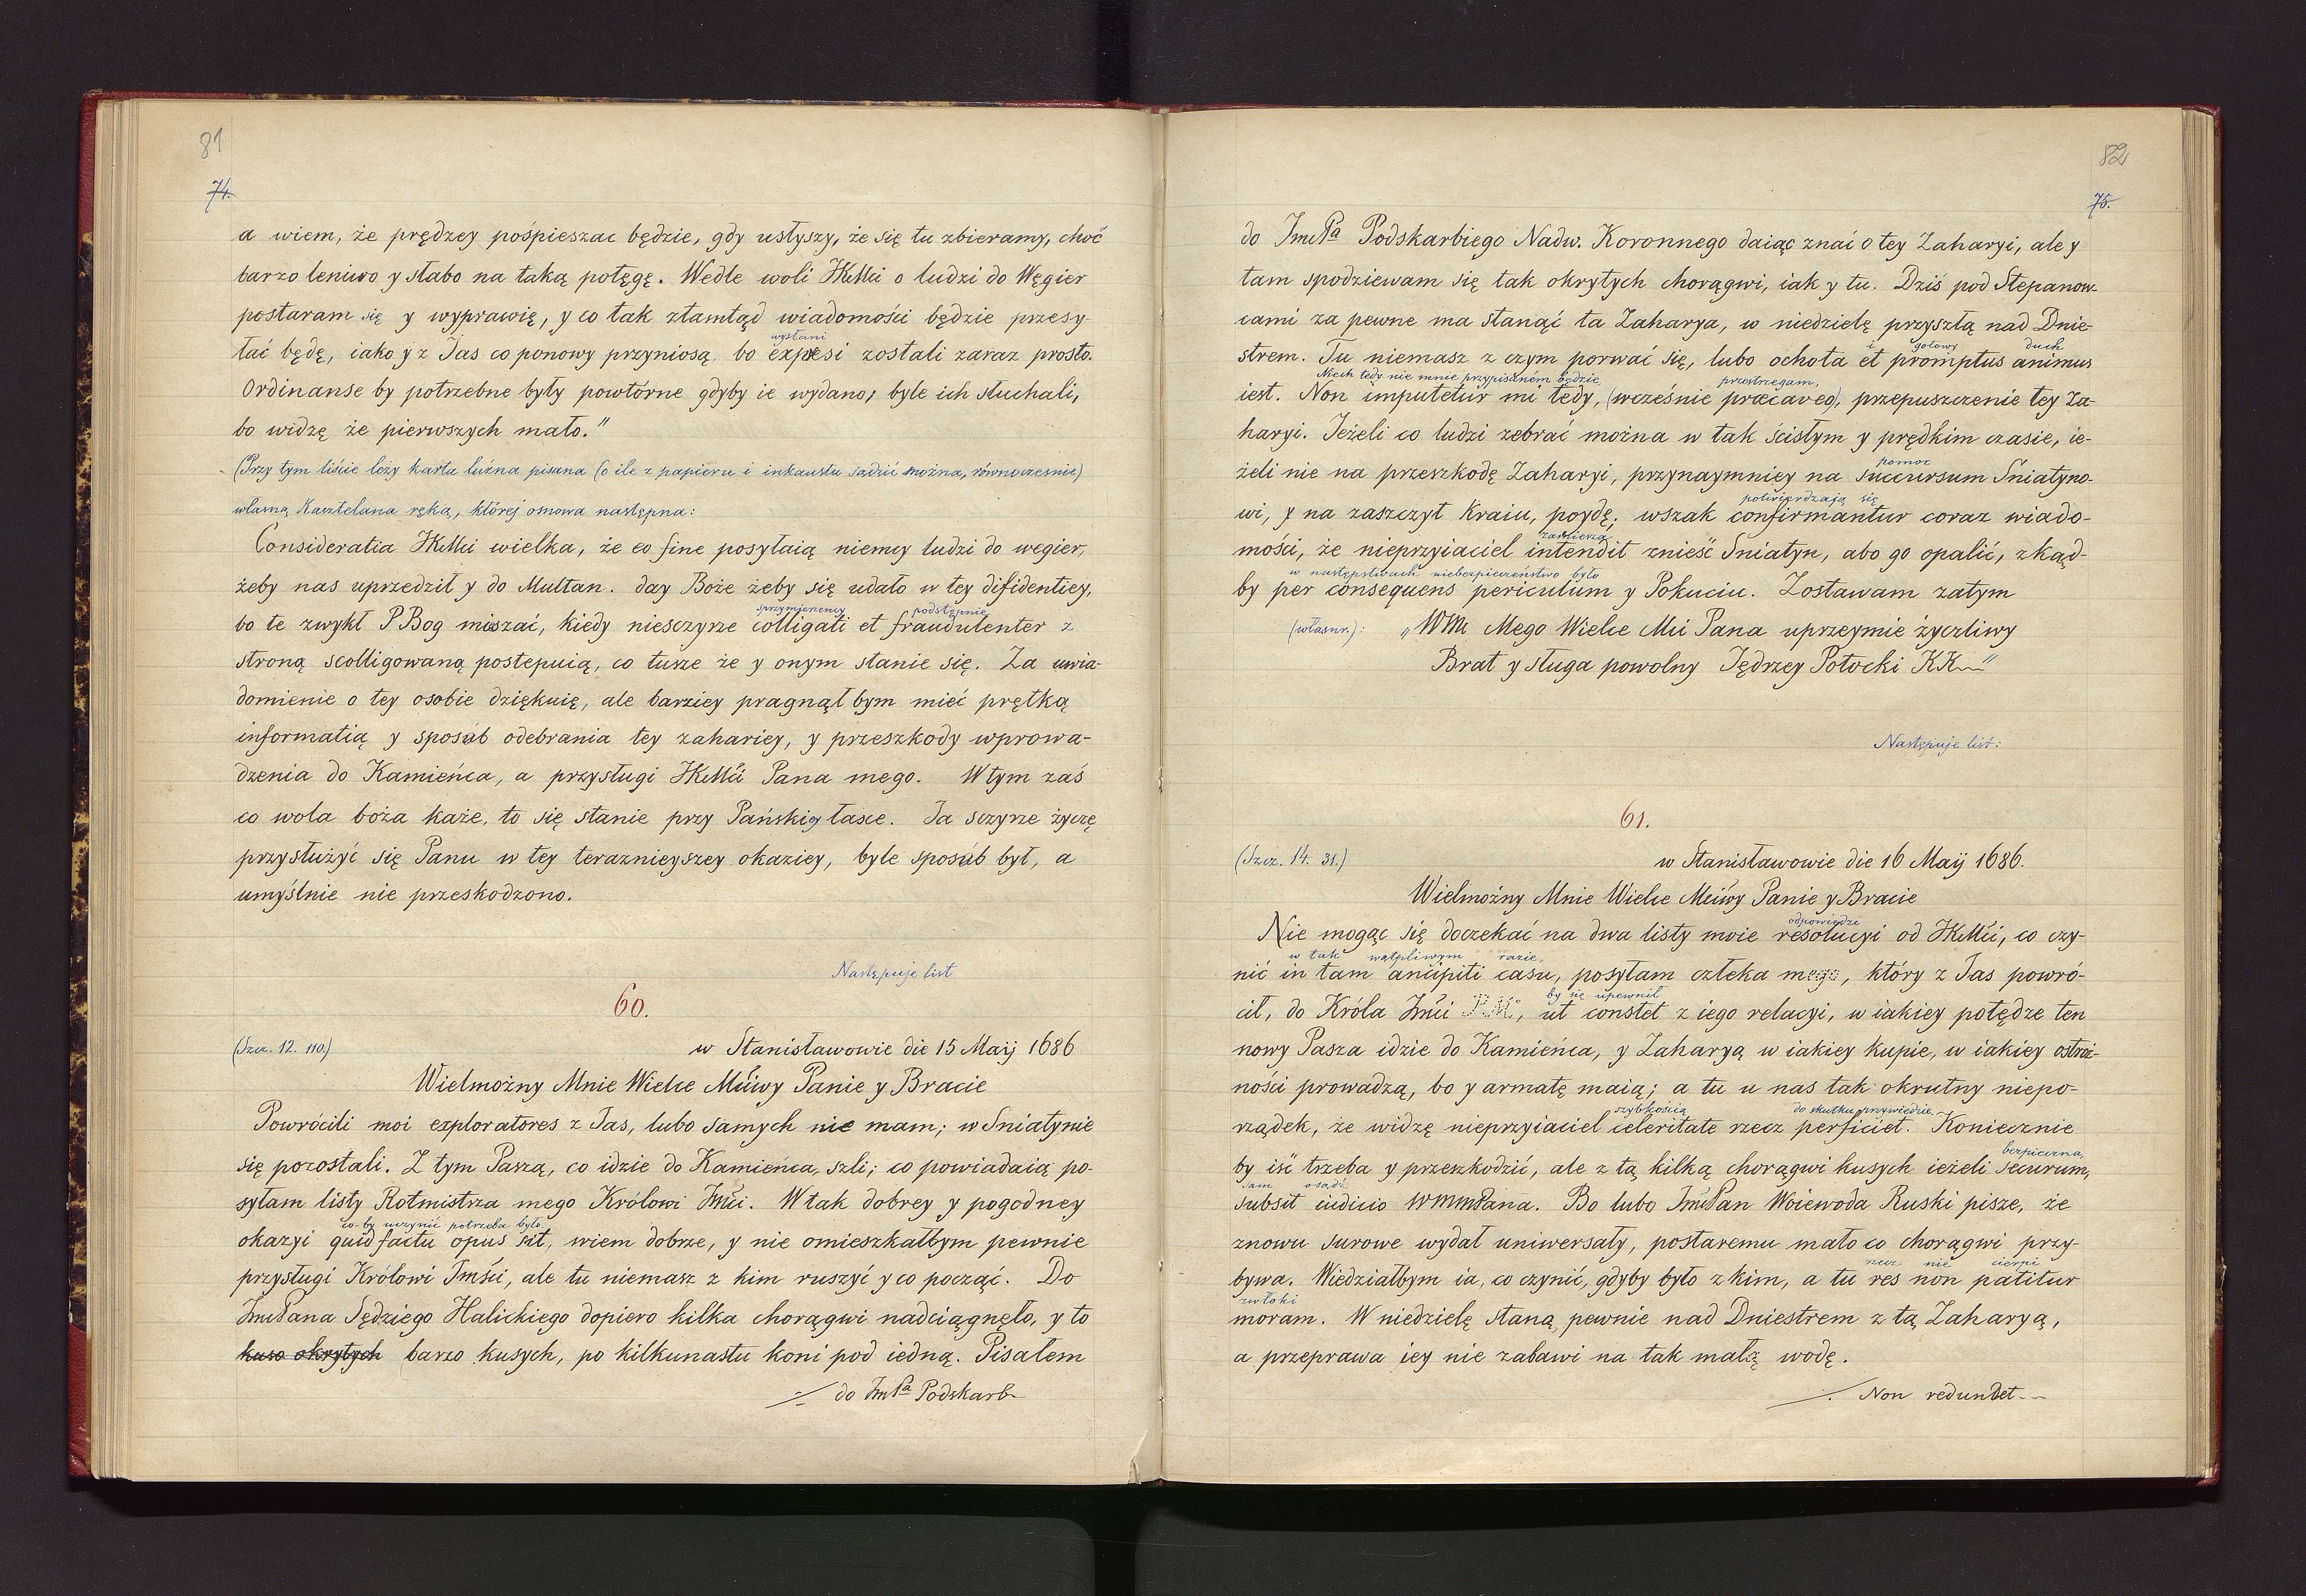 81
74.
a wiem, że prędzey pośpieszac będzie, gdy usłyszy, że się tu zbieramy, choć
barzo leniwo y słabo na taką potęgę. Wedle woli JKMci o ludzi do Węgier
postaram się y wyprawię, y co tak ztamtąd wiadomości będzie przesy-
wysłani
łać będę, iako y z Jas co ponowy przyniosą, bo expesi zostali zaraz prosto.
Ordinanse by potrzebne były powtórne gdyby ie wydano, byle ich słuchali,
bo widzę że pierwszych mało."
(Przy tym liście leży karta luźna pisana (o ile z papieru i inkaustu sądzić można, równocześnie)
własną Kasztelana ręką, której osnowa następna:
Consideratia JKMci wielka, że eo fine posyłaią niemcy ludzi do wegier,
żeby nas uprzedzil y do Multan. day Boże żeby się udało w tey difidentiey,
sprzymierzency podstępnie
bo te zwykł P Bog miszać, kiedy niesczyrze colligati et fraudulenter z
stroną scolligowaną postepuią, co tusze że y onym stanie się. Za uwia-
domienie o tey osobie dziękuię, ale barziey pragnął bym mieć prętką
informatią y sposub odebrania tey zahariey, y przeszkody wprowa-
dzenia do Kamieńca, a przysługi JKMci Pana mego. W tym zaś
co wola boża każe, to się stanie przy Pańskiey łasce. Ja sczyrze życzę
przysłużyć się Panu w tey teraznieyszey okaziey, byle sposub był, a
umyślnie nie przeskodzono.
Następuje list
60.
(Szcz. 12. 110.)
w Stanisławowie die 15 Maij 1686
Wielmożny Mnie Wielce Mciwy Panie y Bracie
Powrócili moi exploratores z Jas, lubo samych nie mam; w Sniatynie
się pozostali. Z tym Paszą, co idzie do Kamieńca, szli; co powiadaią po-
syłam listy Rotmistrza mego Królowi Jmći. W tak dobrey y pogodney
co by uczynić potrzeba było
okazyi quid factu opus sit, wiem dobrze, y nie omieszkałbym pewnie
przysługi Królowi Jmści, ale tu niemasz z kim ruszyć y co począć. Do
JmcPana Sędziego Halickiego dopiero kilka chorągwi nadciągnęło, y to
kuso okrytych barzo kusych, po kilkunastu koni pod iedną. Pisałem
do JmPa Podskarb-
82
75.
do JmcPa Podskarbiego Nadw. Koronnego daiąc znać o tey Zaharyi, ale y
tam spodziewam się tak okrytych chorągwi, iak y tu. Dziś pod Stepanow-
cami za pewne ma stanąć ta Zaharya, w niedzielę przyszłą nad Dnie-
i gotowy duch
strem. Tu niemasz z czym porwać się, lubo ochota et promptus animus
Niech tedy nie mnie przypisaném będzie, przestrzegam,
iest. Non imputetur mi tedy, (wcześnie præcaveo), przepuszczenie tey Za-
haryi. Jeżeli co ludzi zebrać można w tak ścisłym y prędkim czasie, ie-
pomoc
żeli nie na przeszkodę Zaharyi, przynaymniey na succursum Śniatyno-
potwierdzają się
wi, y na zaszczyt Kraiu, poydę; wszak confirmantur coraz wiado-
zamierza
mości, że nieprzyiaciel intendit znieść Sniatyn, abo go opalić, zkąd-
w następstwach niebezpieczeństwo było
by per consequens periculum y Pokuciu. Zostawam zatym
(własnr.): „WMci Mego Wielce Mci Pana uprzeymie życzliwy
Brat y sługa powolny Jędrzey Potocki KK"
Następuje list:
61.
(Szcz. 14. 31.)
w Stanisławowie die 16 Maij 1686.
Wielmożny Mnie Wielce Mciwy Panie y Bracie
odpowiedzi
Nie mogąc się doczekać na dwa listy moie resolucyi od JKMći, co czy-
w tak wątpliwym razie
nić in tam ancipiti casu, posyłam człeka mego, który z Jas powró-
by się upewnił
cił, do Króla Jmći P.M., ut constet z iego relacyi, w iakiey potędze ten
nowy Pasza idzie do Kamieńca, y Zaharyą w iakiey kupie, w iakiey ostroż-
ności prowadzą, bo y armatę maią; a tu u nas tak okrutny niepo-
szybkością do skutku przywiedzie.
rządek, że widzę nieprzyiaciel celeritate rzecz perficiet. Koniecznie
bezpieczna,
by iść trzeba y przeszkodzić, ale z tą kilką chorągwi kusych ieżeli securum,
sam osądź
subsit iudicio WMMPana. Bo lubo JmćPan Woiewoda Ruski pisze, że
znowu surowe wydał uniwersały, postaremu mało co chorągwi przy-
rzecz nie cierpi
bywa. Wiedziałbym ia, co czynić, gdyby było z kim, a tu res non patitur
zwłoki
moram. W niedzielę staną pewnie nad Dniestrem z tą Zaharyą,
a przeprawa iey nie zabawi na tak małą wodę.
Non redundet